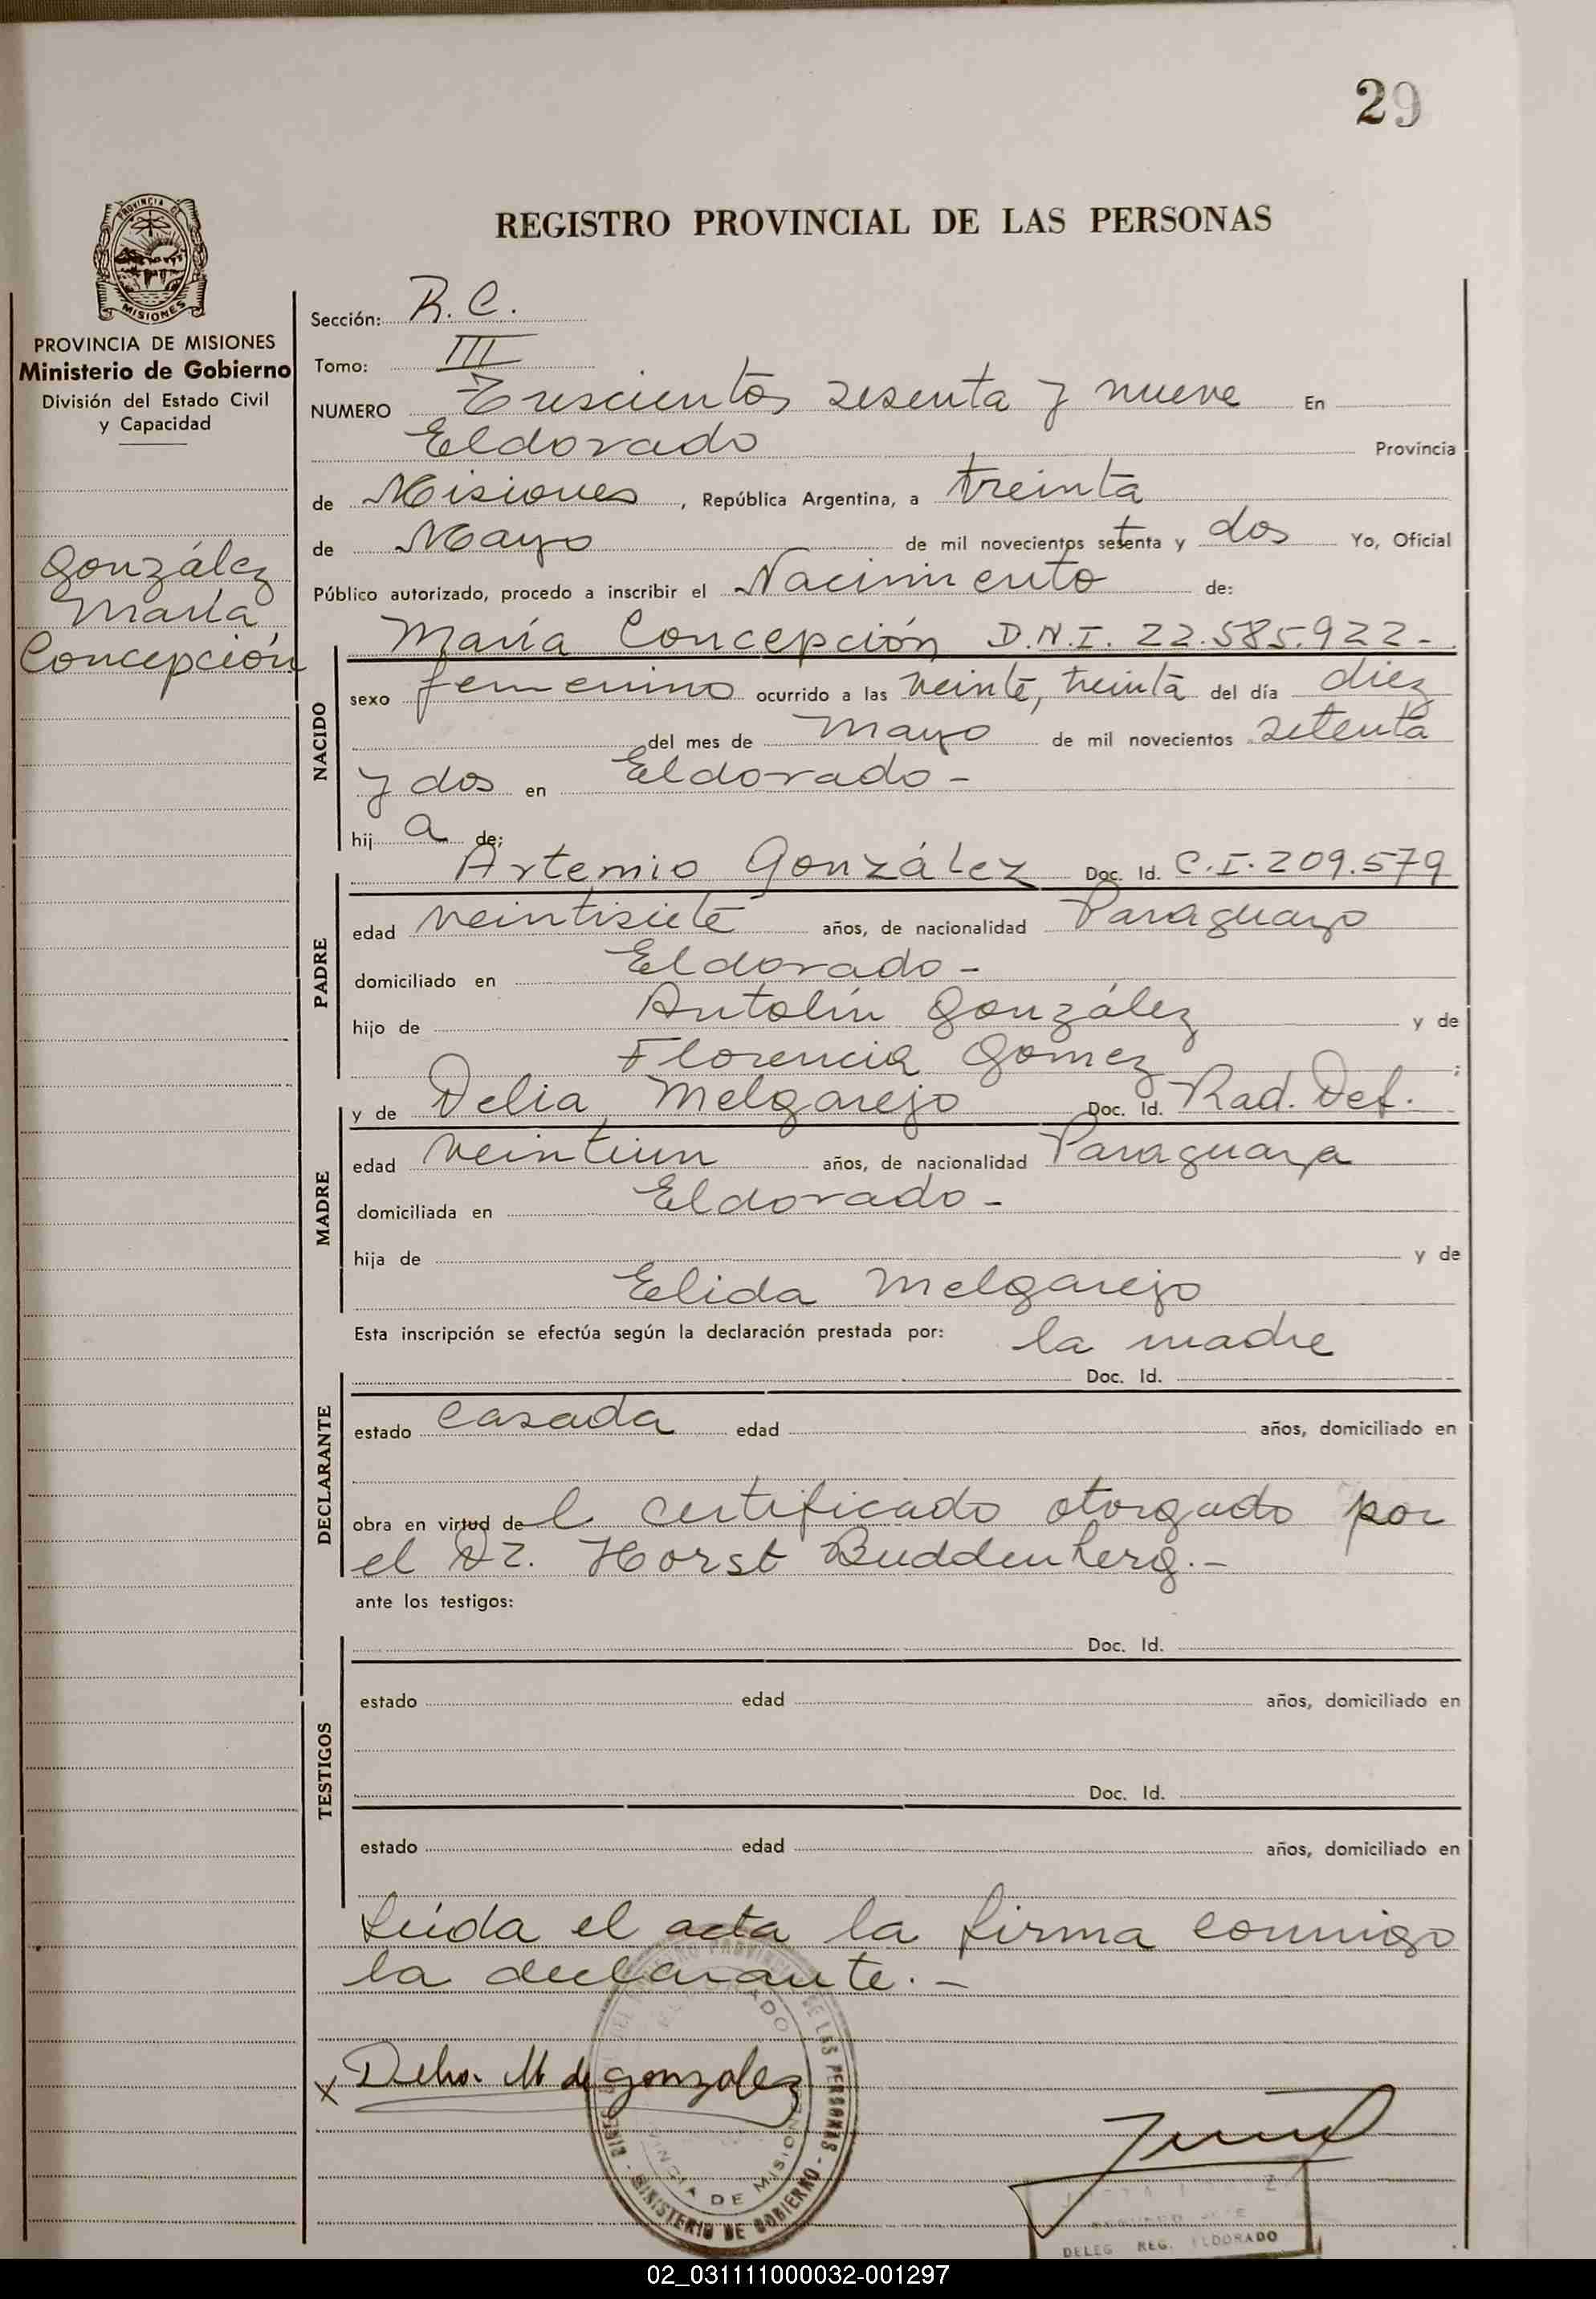 29
REGISTRO PROVINCIAL DE LAS PERSONAS
PROVINCIA DE
MISIONES
PROVINCIA DE MISIONES
Ministerio de Gobierno
División del Estado Civil
y Capacidad
González
María
Concepción
Sección: R. C.
Tomo: III
NUMERO Trescientos sesenta y nueve En
Eldorado Provincia
de Misiones, República Argentina, a treinta
de Mayo de mil novecientos setenta y dos Yo, Oficial
Público autorizado, procedo a inscribir el Nacimiento de:
NACIDO
María Concepción D.N.I. 22.585.922-
sexo femenino ocurrido a las veinte, treinta del día diez
del mes de mayo de mil novecientos setenta
y dos en Eldorado -
hij a de:
PADRE
Artemio González Doc. Id. C.I. 209.579
edad veintisiete años, de nacionalidad Paraguayo
domiciliado en Eldorado -
hijo de Antolín González y de
Florencia Gomez ;
MADRE
y de Delia Melgarejo Doc. Id. Rad. Def.
edad veintiun años, de nacionalidad Paraguaya
domiciliada en Eldorado -
hija de y de
Elida Melgarejo
Esta inscripción se efectúa según la declaración prestada por: la madre
DECLARANTE
Doc. Id.
estado casada edad años, domiciliado en
obra en virtud de l certificado otorgado por
el Dr. Horst Buddenberg.-
ante los testigos:
TESTIGOS
Doc. Id.
estado edad años, domiciliado en
Doc. Id.
estado edad años, domiciliado en
Leída el acta la firma conmigo
la declarante. -
x Delia M de gonzalez
REGISTRO PROVINCIAL DE LAS PERSONAS - MINISTERIO DE GOBIERNO
ELDORADO
PROVINCIA DE MISIONES
DELEG. REG. ELDORADO
02_031111000032-001297